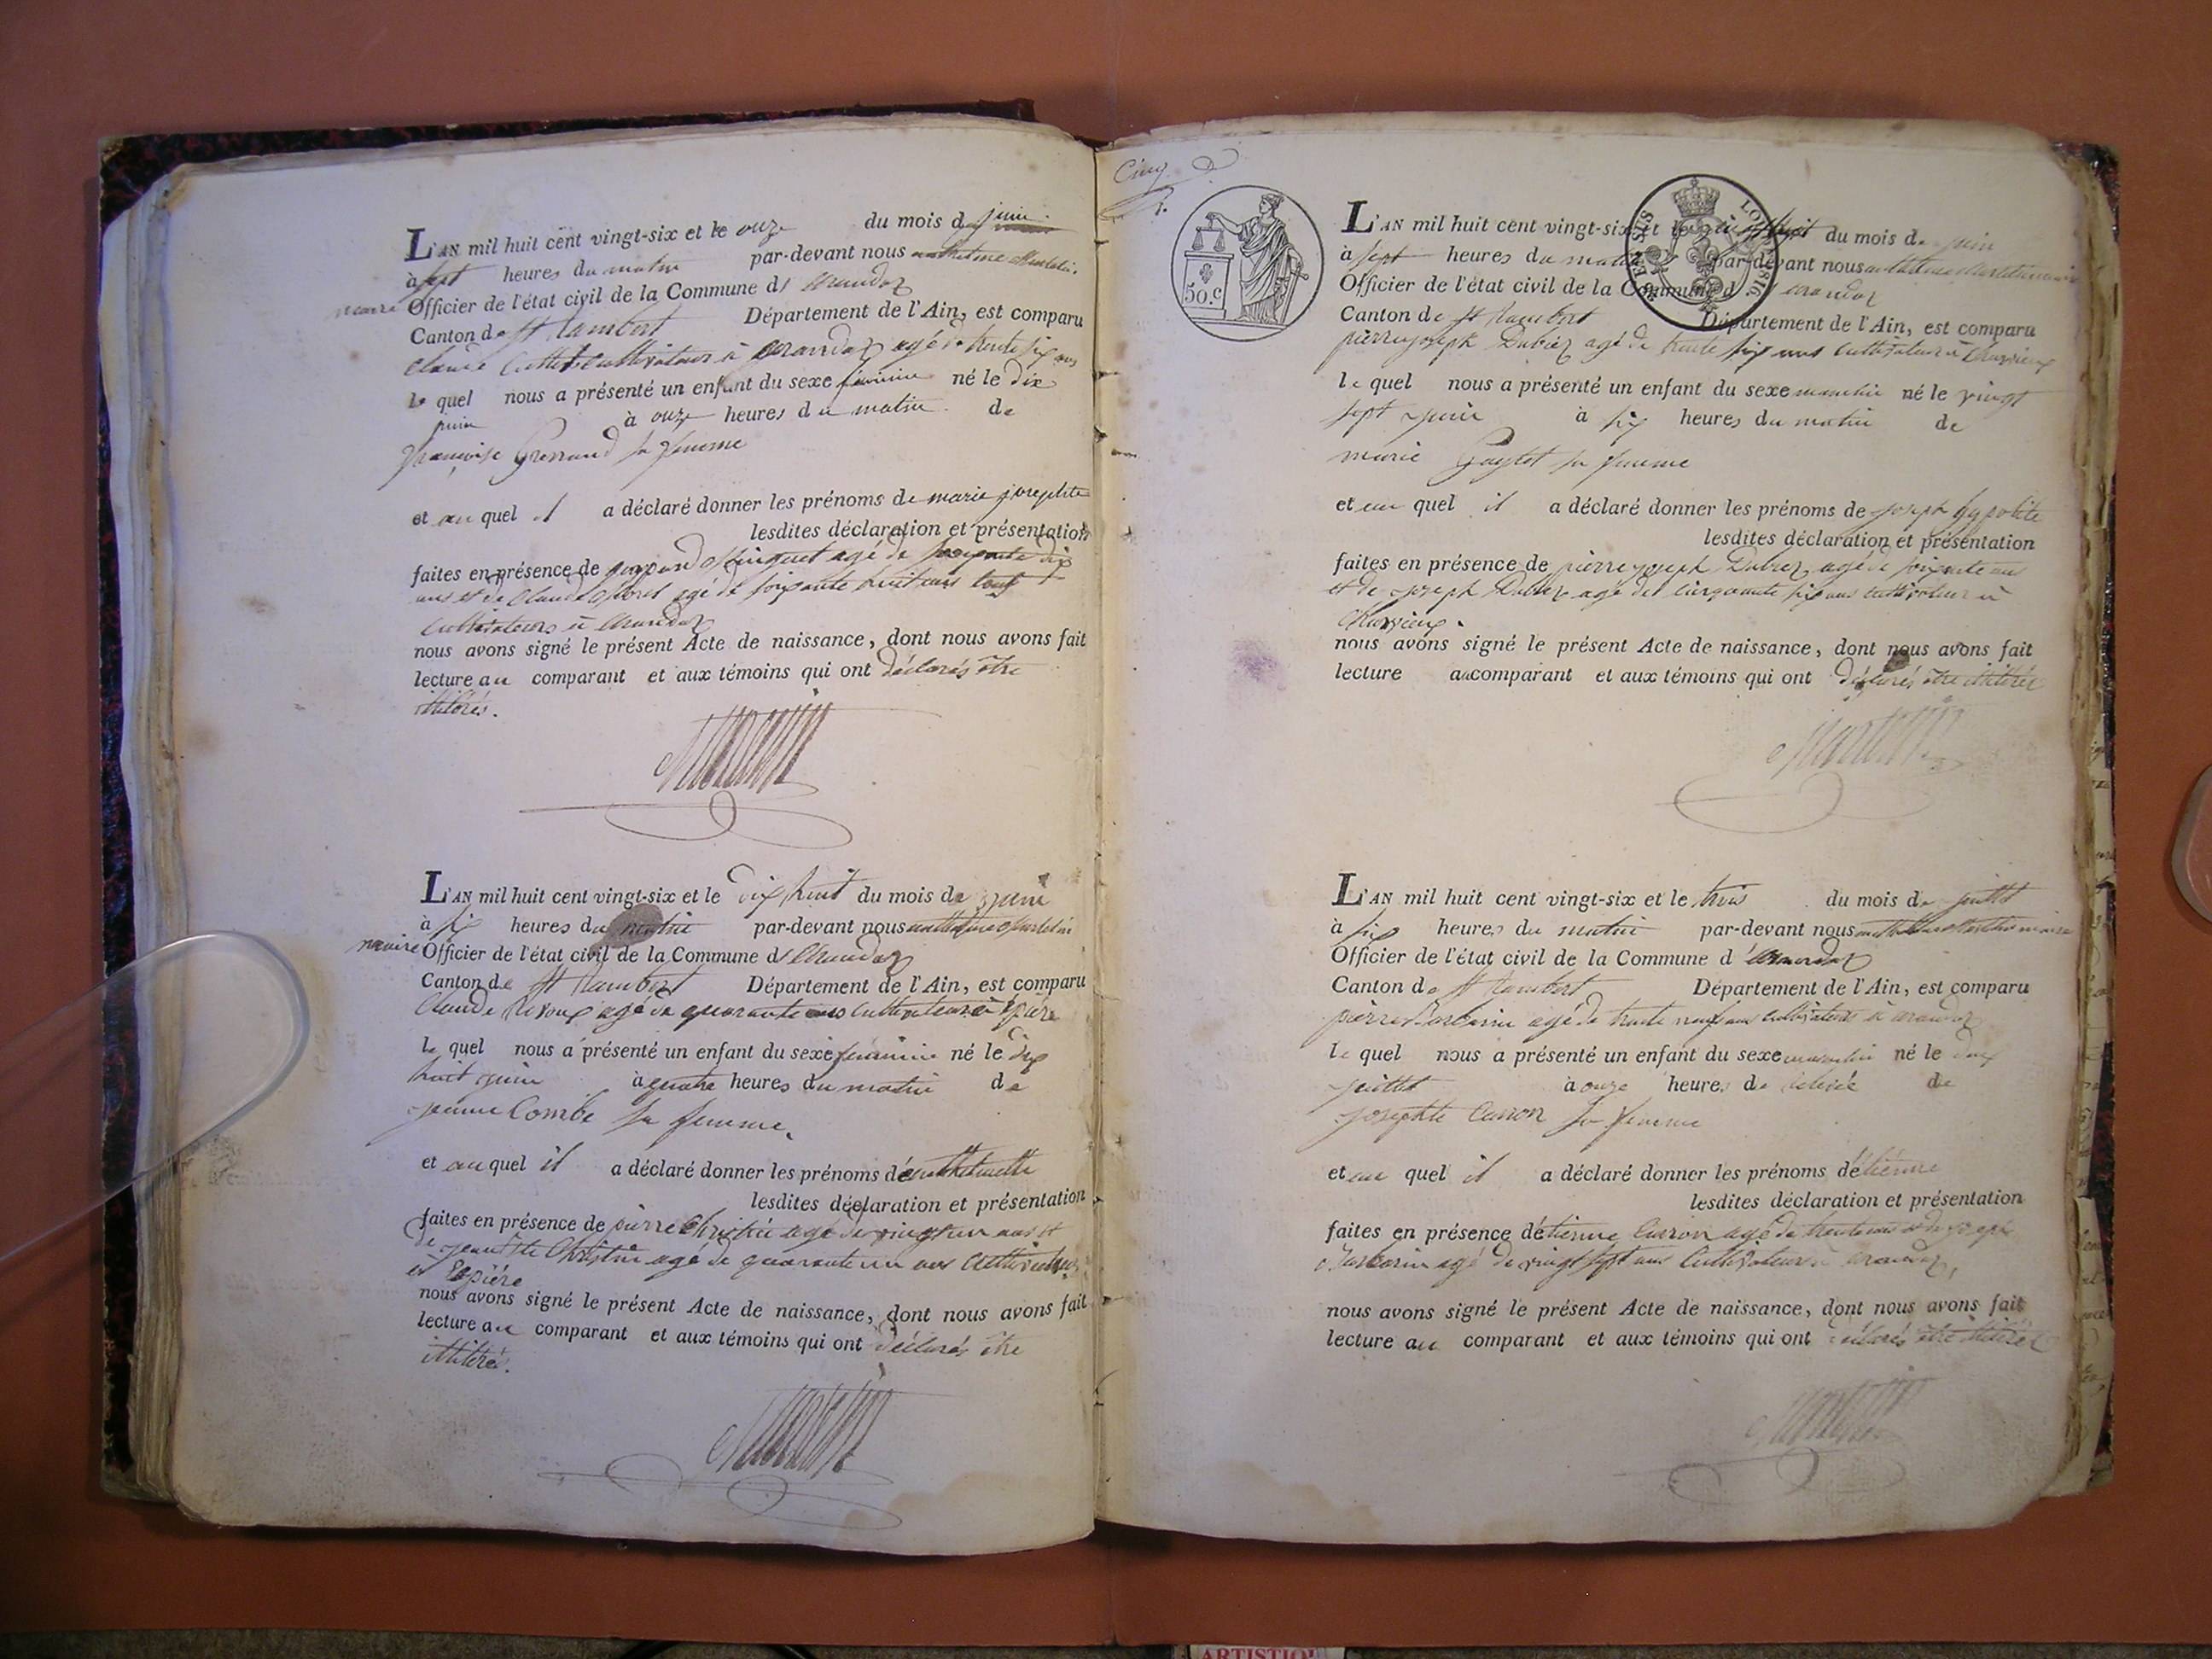 L'AN mil huit cent vingt-six et le onze du mois de juin
à sept heures du matin par-devant nous anthelme Martelin
maire Officier de l'état civil de la Commune d'arandaz
Canton de St Rambert Département de l'Ain, est comparu
Claude Cultivateur à arandaz agé de trente six ans
le quel nous a présenté un enfant du sexe féminin né le dix
juin à onze heures du matin de
françoise sa femme
et au quel il a déclaré donner les prénoms de marie josephte
lesdites déclaration et présentation
faites en présence de agé de soixante dix
ans et de Claude agé de soixante huit ans tous
cultivateurs à arandaz
nous avons signé le présent Acte de naissance, dont nous avons fait
lecture au comparant et aux témoins qui ont déclarés être
illitérés.
L'AN mil huit cent vingt-six et le dix huit du mois de juin
à six heures du matin par-devant nous anthelme Martelin
maire Officier de l'état civil de la Commune d'arandaz
Canton de St Rambert Département de l'Ain, est comparu
Claude agé de quarante ans Cultivateur à
le quel nous a présenté un enfant du sexe féminin né le dix
huit juin à quatre heures du matin de
jeanne Combe sa femme.
et au quel il a déclaré donner les prénoms d'anthelmette
lesdites déclaration et présentation
faites en présence de pierre Christin agé de vingt un ans et
de jean Bte Christin agé de quarante un ans Cultivateurs
à Epiére
nous avons signé le présent Acte de naissance, dont nous avons fait
lecture au comparant et aux témoins qui ont déclarés être
illitérés.
Cinq
50.c
L'AN mil huit cent vingt-six et le vingt sept du mois de juin
à sept heures du matin par-devant nous anthelme Martelin maire
Officier de l'état civil de la Commune d'arandaz
Canton de St Rambert Département de l'Ain, est comparu
pierre joseph Dubiez agé de trente six ans Cultivateur à
le quel nous a présenté un enfant du sexe masculin né le vingt
sept juin à six heures du matin de
marie sa femme
et au quel il a déclaré donner les prénoms de joseph hypolite
lesdites déclaration et présentation
faites en présence de pierre joseph Dubiez agé de soixante ans
et de joseph Dubiez agé de cinquante six ans cultivateur à
nous avons signé le présent Acte de naissance, dont nous avons fait
lecture au comparant et aux témoins qui ont déclarés être illitérés
Martelin
L'AN mil huit cent vingt-six et le trois du mois de juillet
à six heures du matin par-devant nous anthelme Martelin maire
Officier de l'état civil de la Commune d'arandaz
Canton de St Rambert Département de l'Ain, est comparu
pierre agé de trente neuf ans cultivateur à arandaz
le quel nous a présenté un enfant du sexe masculin né le deux
juillet à onze heures de de
josephte Curron sa femme
et au quel il a déclaré donner les prénoms d'étienne
lesdites déclaration et présentation
faites en présence d'étienne Curron agé de trente ans et de joseph
agé de vingt sept ans Cultivateurs à arandaz,
nous avons signé le présent Acte de naissance, dont nous avons fait
lecture au comparant et aux témoins qui ont déclarés être illitérés
ARTISTIQU